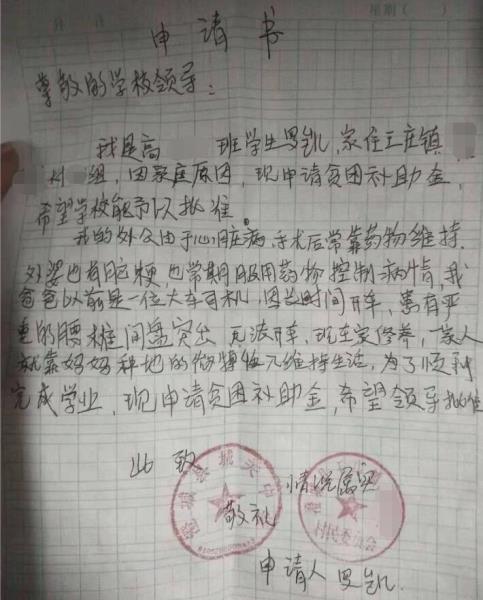 星期（　）
申请书
尊敬的学校领导：
我是高 班学生罗凯，家住三庄镇
村 组，因家庭原因，现申请贫困补助金，
希望学校能予以批准。
我的外公由于心脏病，手术后常靠药物维持，
外婆也有脑梗，也常期服用药物控制病情，我
爸爸以前是一位大车司机，因长时间开车，患有严
重的腰椎间盘突出，无法开车，现在家修养，家人
就靠妈妈种地的微薄收入维持生活，为了顺利
完成学业，现申请贫困补助金，希望领导批准
此致
情况属实
敬礼
村民委员会
申请人 罗凯